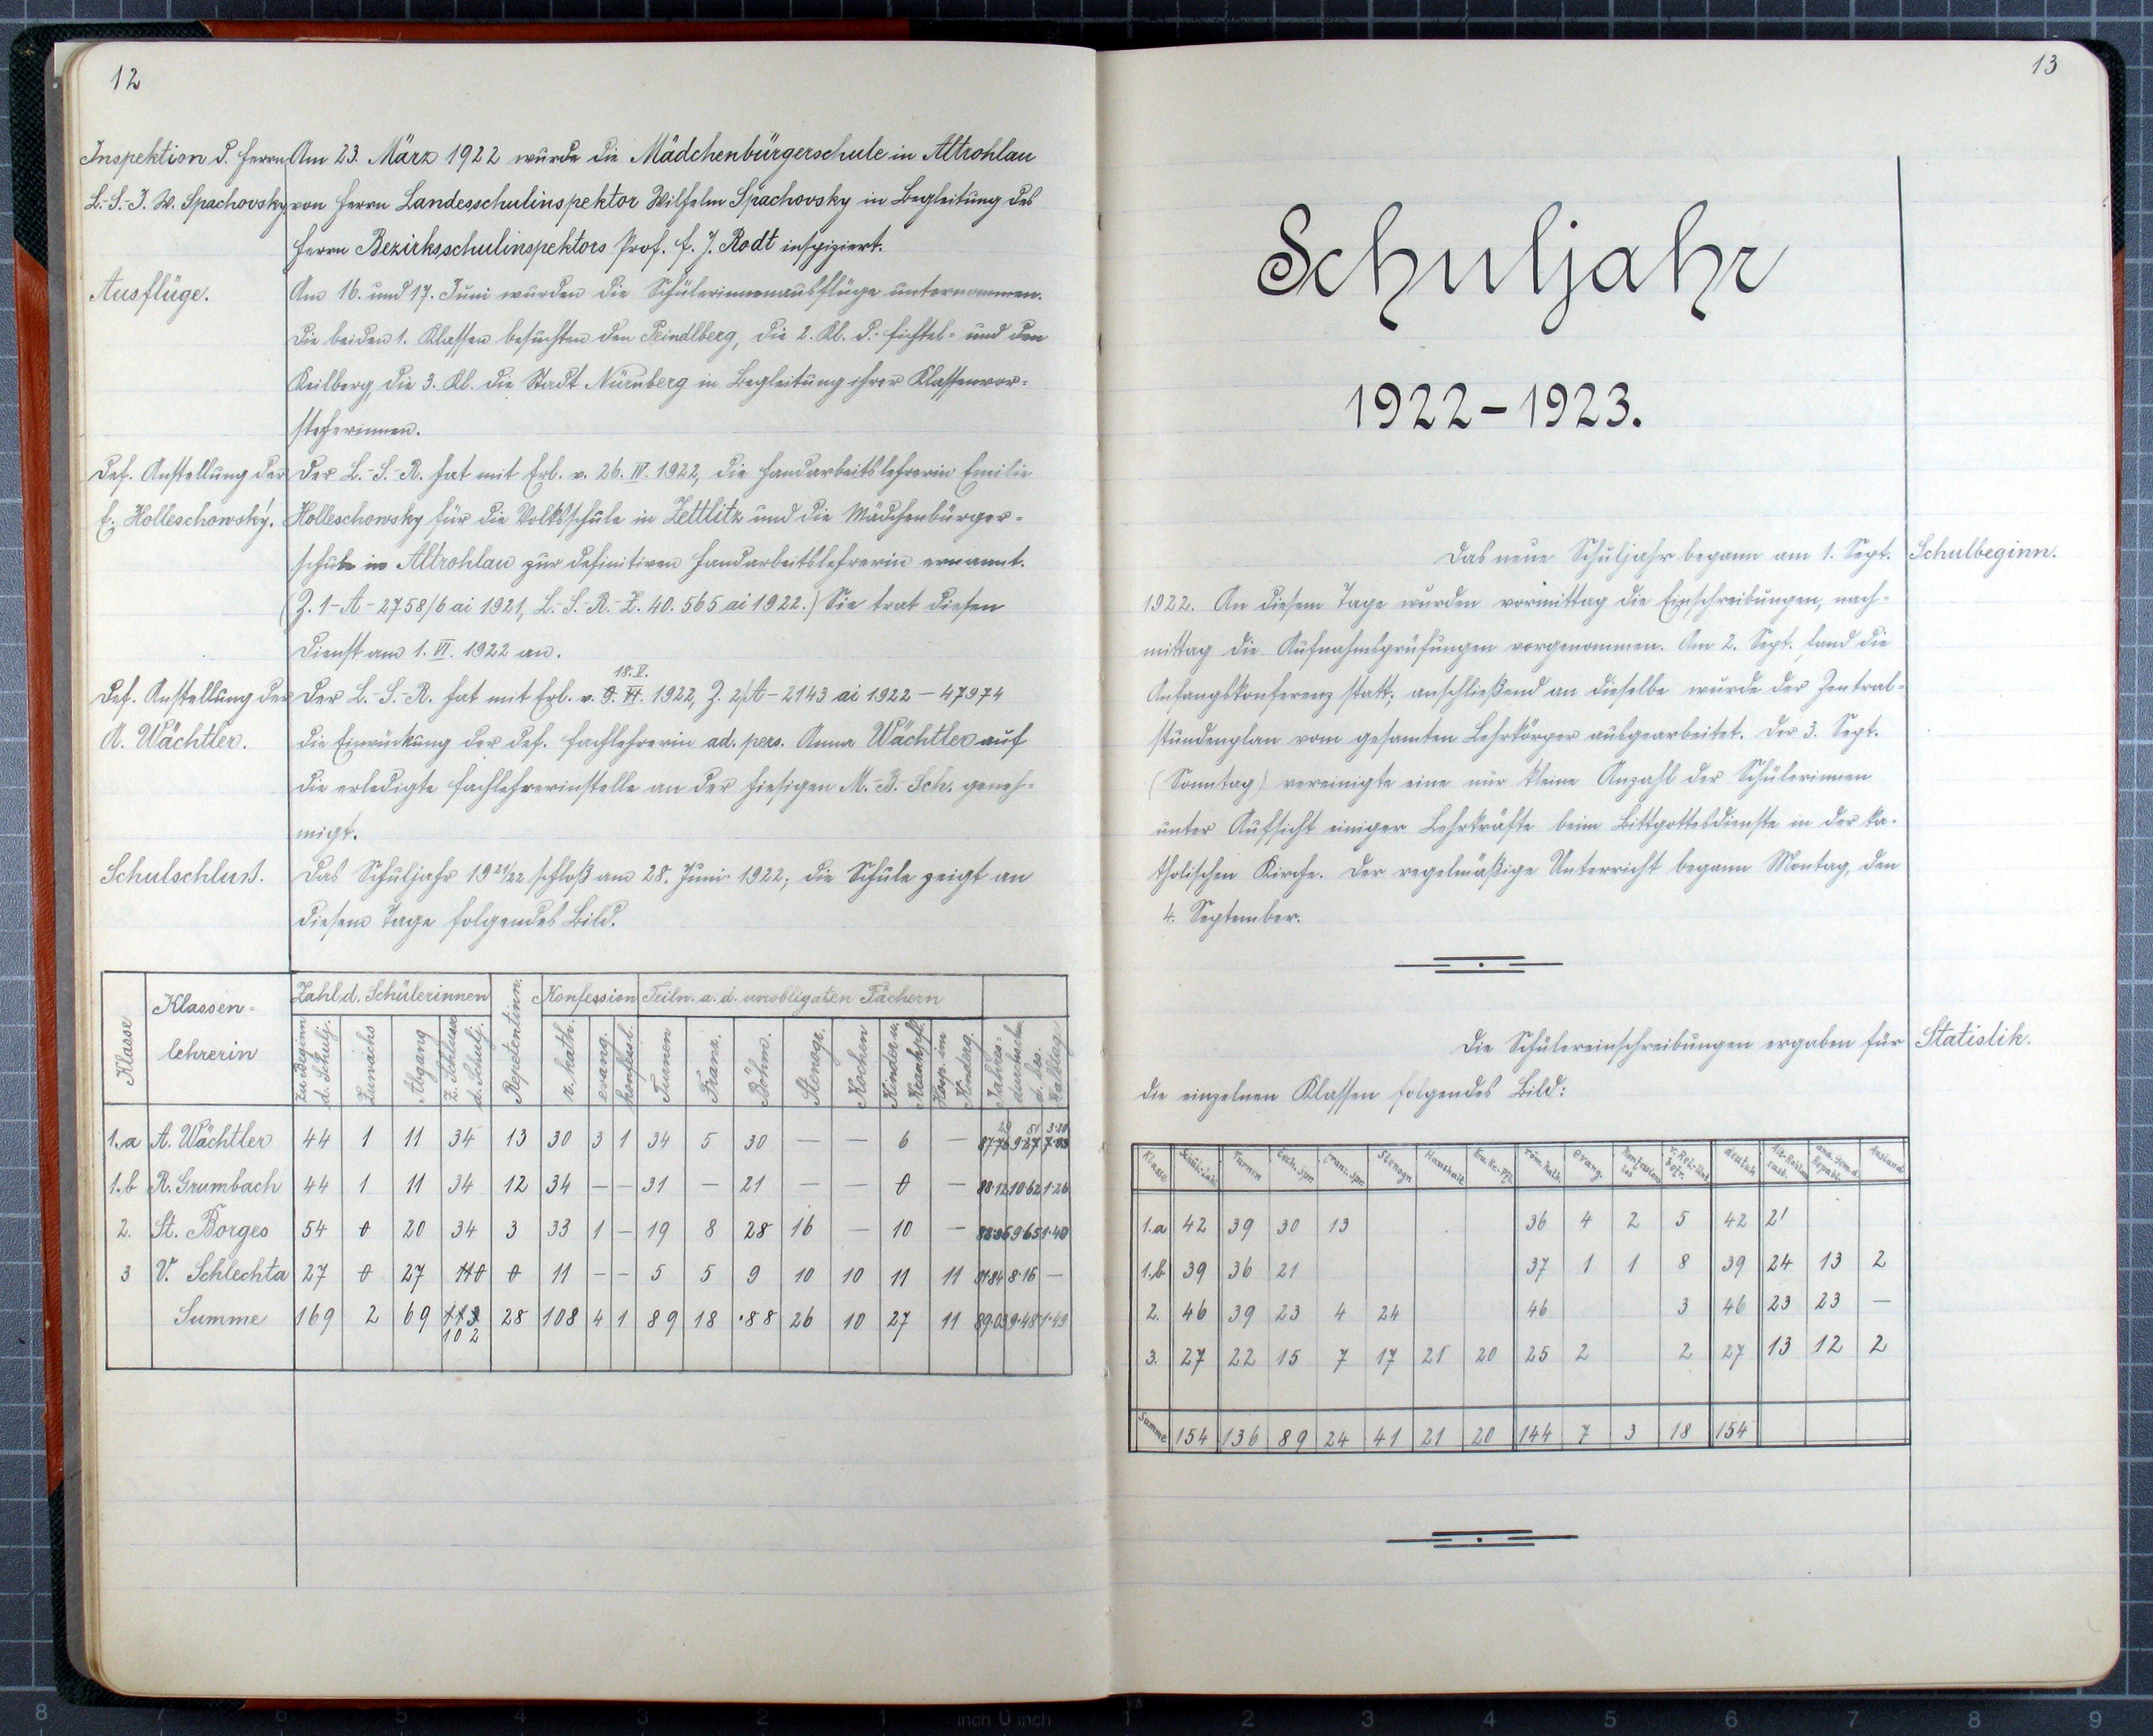 12
Inspektion d. Herrn
L.-S.-I. W. Spachovsky.
Am 23. März 1922 wurde die Mädchenbürgerschule in Altrohlau
von Herrn Landesschulinspektor Wilhelm Spachovsky in Begleitung des
Herrn Bezirksschulinspektors Prof. F. J. Rodt inspiziert.
Ausflüge.
Am 16. und 17. Juni wurden die Schülerinnenausflüge unternommen.
Die beiden 1. Klassen besuchten den Peindlberg, die 2. Kl. d. Fichtel- und den
Keilberg, die 3. Kl. die Stadt Nürnberg in Begleitung ihrer Klassenvor-
steherinnen.
Def. Anstellung der
E. Holleschowsky.
Der L.-S.-R. hat mit Erl. v. 26. IV. 1922, die Handarbeitslehrerin Emilie
Holleschowsky für die Volksschule in Zettlitz und die Mädchenbürger-
schule in Altrohlau zur definitiven Handarbeitslehrerin ernannt.
(Z. 1-A-2758/6 ai 1921, L.-S.-R.-Z. 40.565 ai 1922.) Sie trat diesen
Dienst am 1. VI. 1922 an.
Def. Anstellung der
A. Wächtler.
18. V.
Der L.-S.-R. hat mit Erl. v. 1922, Z. 2/A-2143 ai 1922 - 47974
die Einrückung der def. Fachlehrerin ad. pers. Anna Wächtler auf
die erledigte Fachlehrerinstelle an der hiesigen M.-B.-Sch. geneh-
migt.
Schulschluss.
Das Schuljahr 1921/22 schloß am 28. Juni 1922; die Schule zeigt an
diesem Tage folgendes Bild.
Klasse Klassen-lehrerin Zahl d. Schülerinnen Repetentinn. Konfession Teiln. a. d. unobligaten Fächern
Zu Beginn d. Schulj. Zuwachs Abgang Z. Schlusse d. Schulj. r. kath. evang. konfessl. Turnen Franz. Böhm. Stenogr. Kochen Kinder u. Krankpfl. Hosp. im Kinderg. Jahres-durchschn. d. bes.
1.a A. Wächtler 44 1 11 34 13 30 3 1 34 5 30 — — 6 —
1.b R. Grumbach 44 1 11 34 12 34 — — 31 — 21 — — 0 — 88·12 10·62 1·26
2. St. Borges 54 0 20 34 3 33 1 — 19 8 28 16 — 10 — 9·65 1·40
3 V. Schlechta 27 0 27 0 0 11 — — 5 5 9 10 10 11 11 91·84 8·16 —
Summe 169 2 69 113 28 108 4 1 89 18 88 26 10 27 11 89·03 9·48 1·49
102
13
Schuljahr
1922-1923.
Schulbeginn.
Das neue Schuljahr begann am 1. Sept.
1922. An diesem Tage wurden vormittag die Einschreibungen, nach-
mittag die Aufnahmsprüfungen vorgenommen. Am 2. Sept. fand die
Anfangskonferenz statt; anschließend an dieselbe wurde der Zentral-
stundenplan vom gesamten Lehrkörper ausgearbeitet. Der 3. Sept.
(Sonntag) vereinigte eine nur kleine Anzahl der Schülerinnen
unter Aufsicht einiger Lehrkräfte beim Bittgottesdienste in der ka-
tholischen Kirche. Der regelmäßige Unterricht begann Montag, den
4. September.
Statistik.
Die Schülereinschreibungen ergaben für
die einzelnen Klassen folgendes Bild:
Klasse Schül.-Zahl Turnen tsch. Spr. franz. Spr. Stenogr. Haushalt. Kn. Kr.-Pfl. röm. kath. evang. Konfessions los deutsch Alt-Rohlau Ausland
1.a 42 39 30 13 36 4 2 5 42 21
1.b 39 36 21 37 1 1 8 39 24 13 2
2. 46 39 23 4 24 46 3 46 23 23 —
3. 27 22 15 7 17 21 20 25 2 2 27 13 12 2
Summe 154 136 89 24 41 21 20 144 7 3 18 154
8 7 6 5 4 3 2 1 inch 0 inch 1 2 3 4 5 6 7 8 9